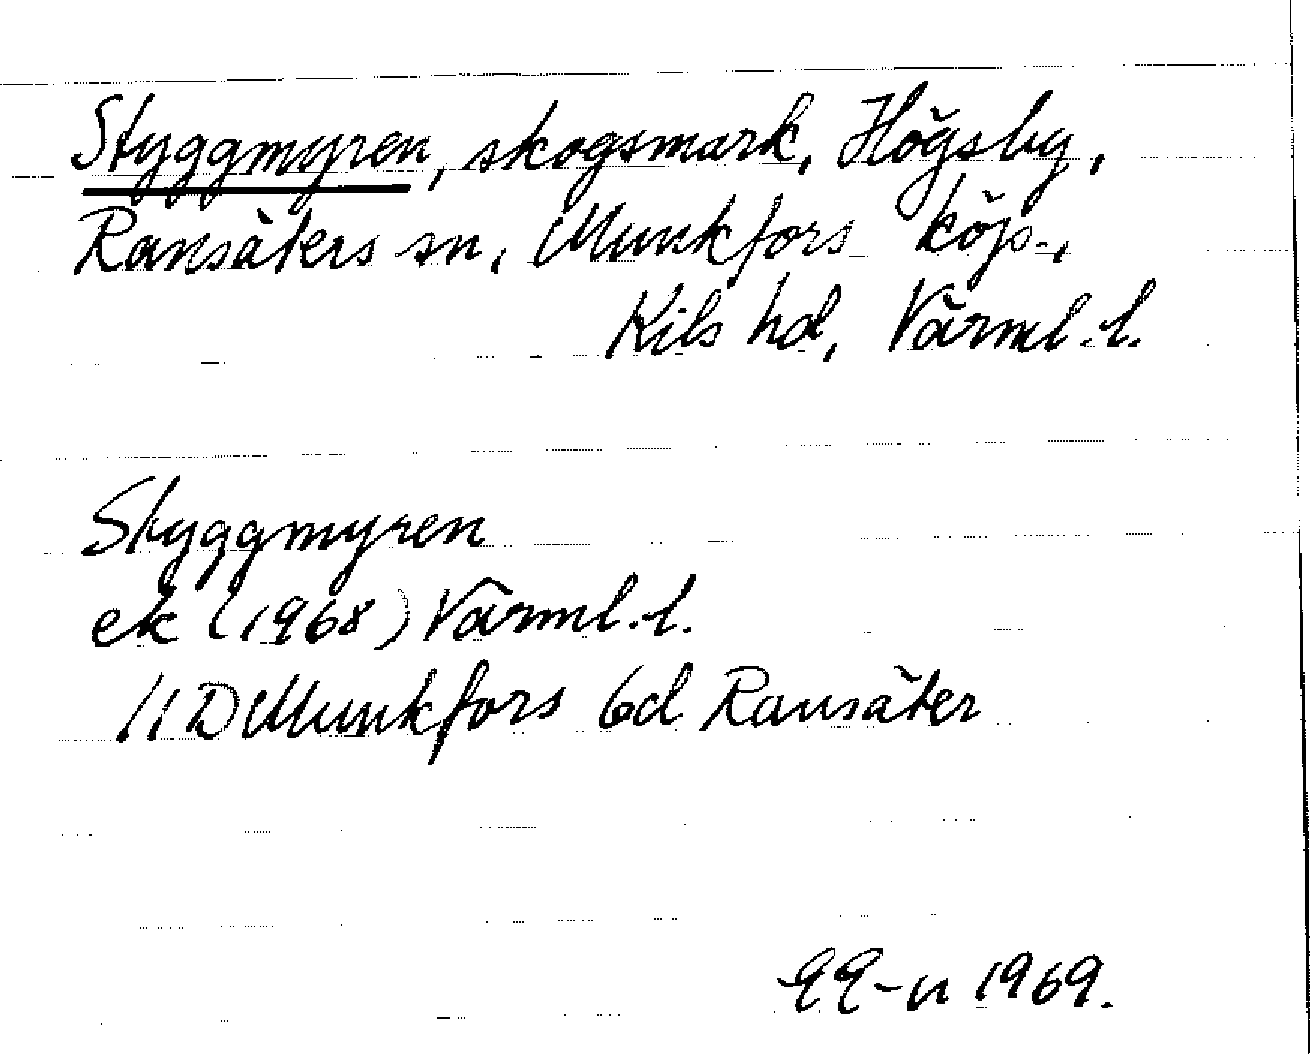 Styggmyren, skogsmark, Högsby,
Ransäters sn, Munkfors köp.,
Kils hd, Värml.l.
Styggmyren
ek (1968) Värml.l.
11D Munkfors 6d Ransäter
1969.